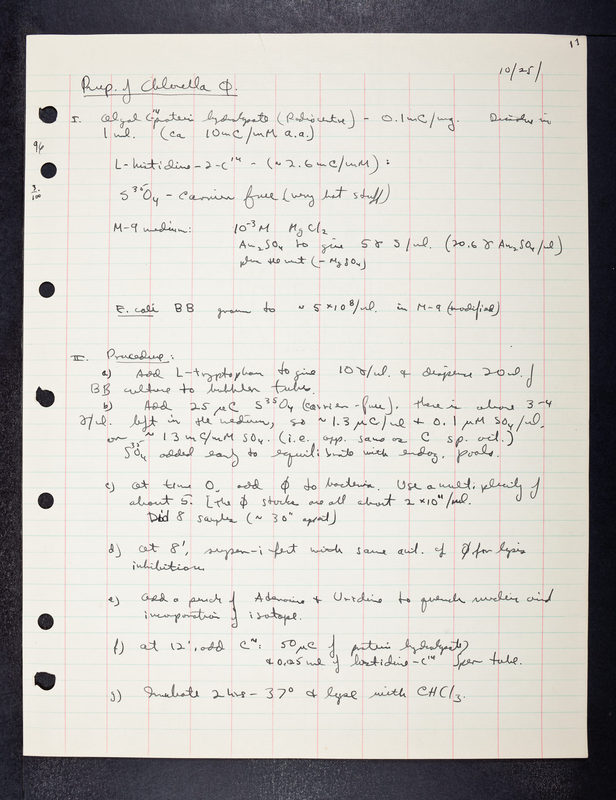 11
10/25/
Prep. of Chlorella Φ.
I. Algal C14 protein hydrolysate (Radiocentre) - 0.1 mC/mg. Dissolve in
1 ml. (ca 10 mC/mM a.a.)
96
L-histidine-2-C14 - (~2.6 mC/mM):
3.
100
S35O4 - Carrier free (very hot stuff)
M-9 medium: 10-3 M MgCl2
Am2SO4 to give 5γ S/ml. (20.6 γ Am2SO4/ml)
plus the rest (- MgSO4)
E. coli BB grown to ~ 5 x 10 8/ml. in M-9 (modified)
II. Procedure:
a) Add L-tryptophan to give 10γ/ml. & dispense 20 ml. of
BB culture to bubbler tubes.
b) Add 25 μC S35O4 (carrier-free). There is above 3-4
γ/ml. left in the medium, so ~ 1.3 μC/ml & 0.1 μM SO4/ml.
or ~ 13 mC/mM SO4. (i.e. app. same as C sp. act.)
S35O4 added early to equilibrate with endog. pools.
c) At time 0, add Φ to bacteria. Use a multiplicity of
about 5. [The Φ stocks are all about 2 x 10 11/ml.
Did 8 samples (~ 30" apart)
d) At 8', super-infect with same amt. of Φ for lysis
inhibition
e) Add a pinch of Adenosine & Uridine to quench nucleic acid
incorporation of isotope.
f) At 12', add C14: 50 μC of protein hydrolysate
& 0.25 ml of histidine-C14 per tube.
g) Incubate 2 hrs - 37° & lyse with CHCl3.